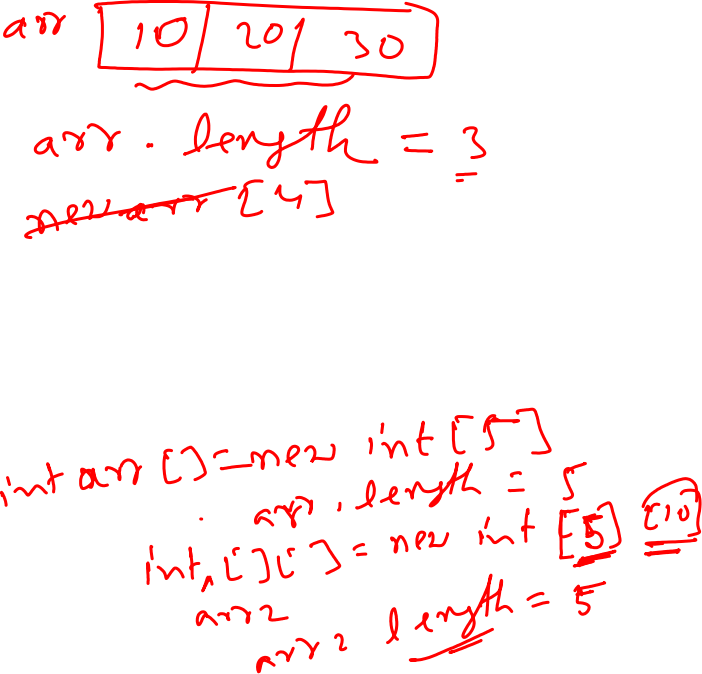 arr 10 20 30
arr . length = 3
newarr [4]
int arr []=new int [5]
arr . length = 5
int [][] = new int [5] [10]
arr2
arr2 length = 5